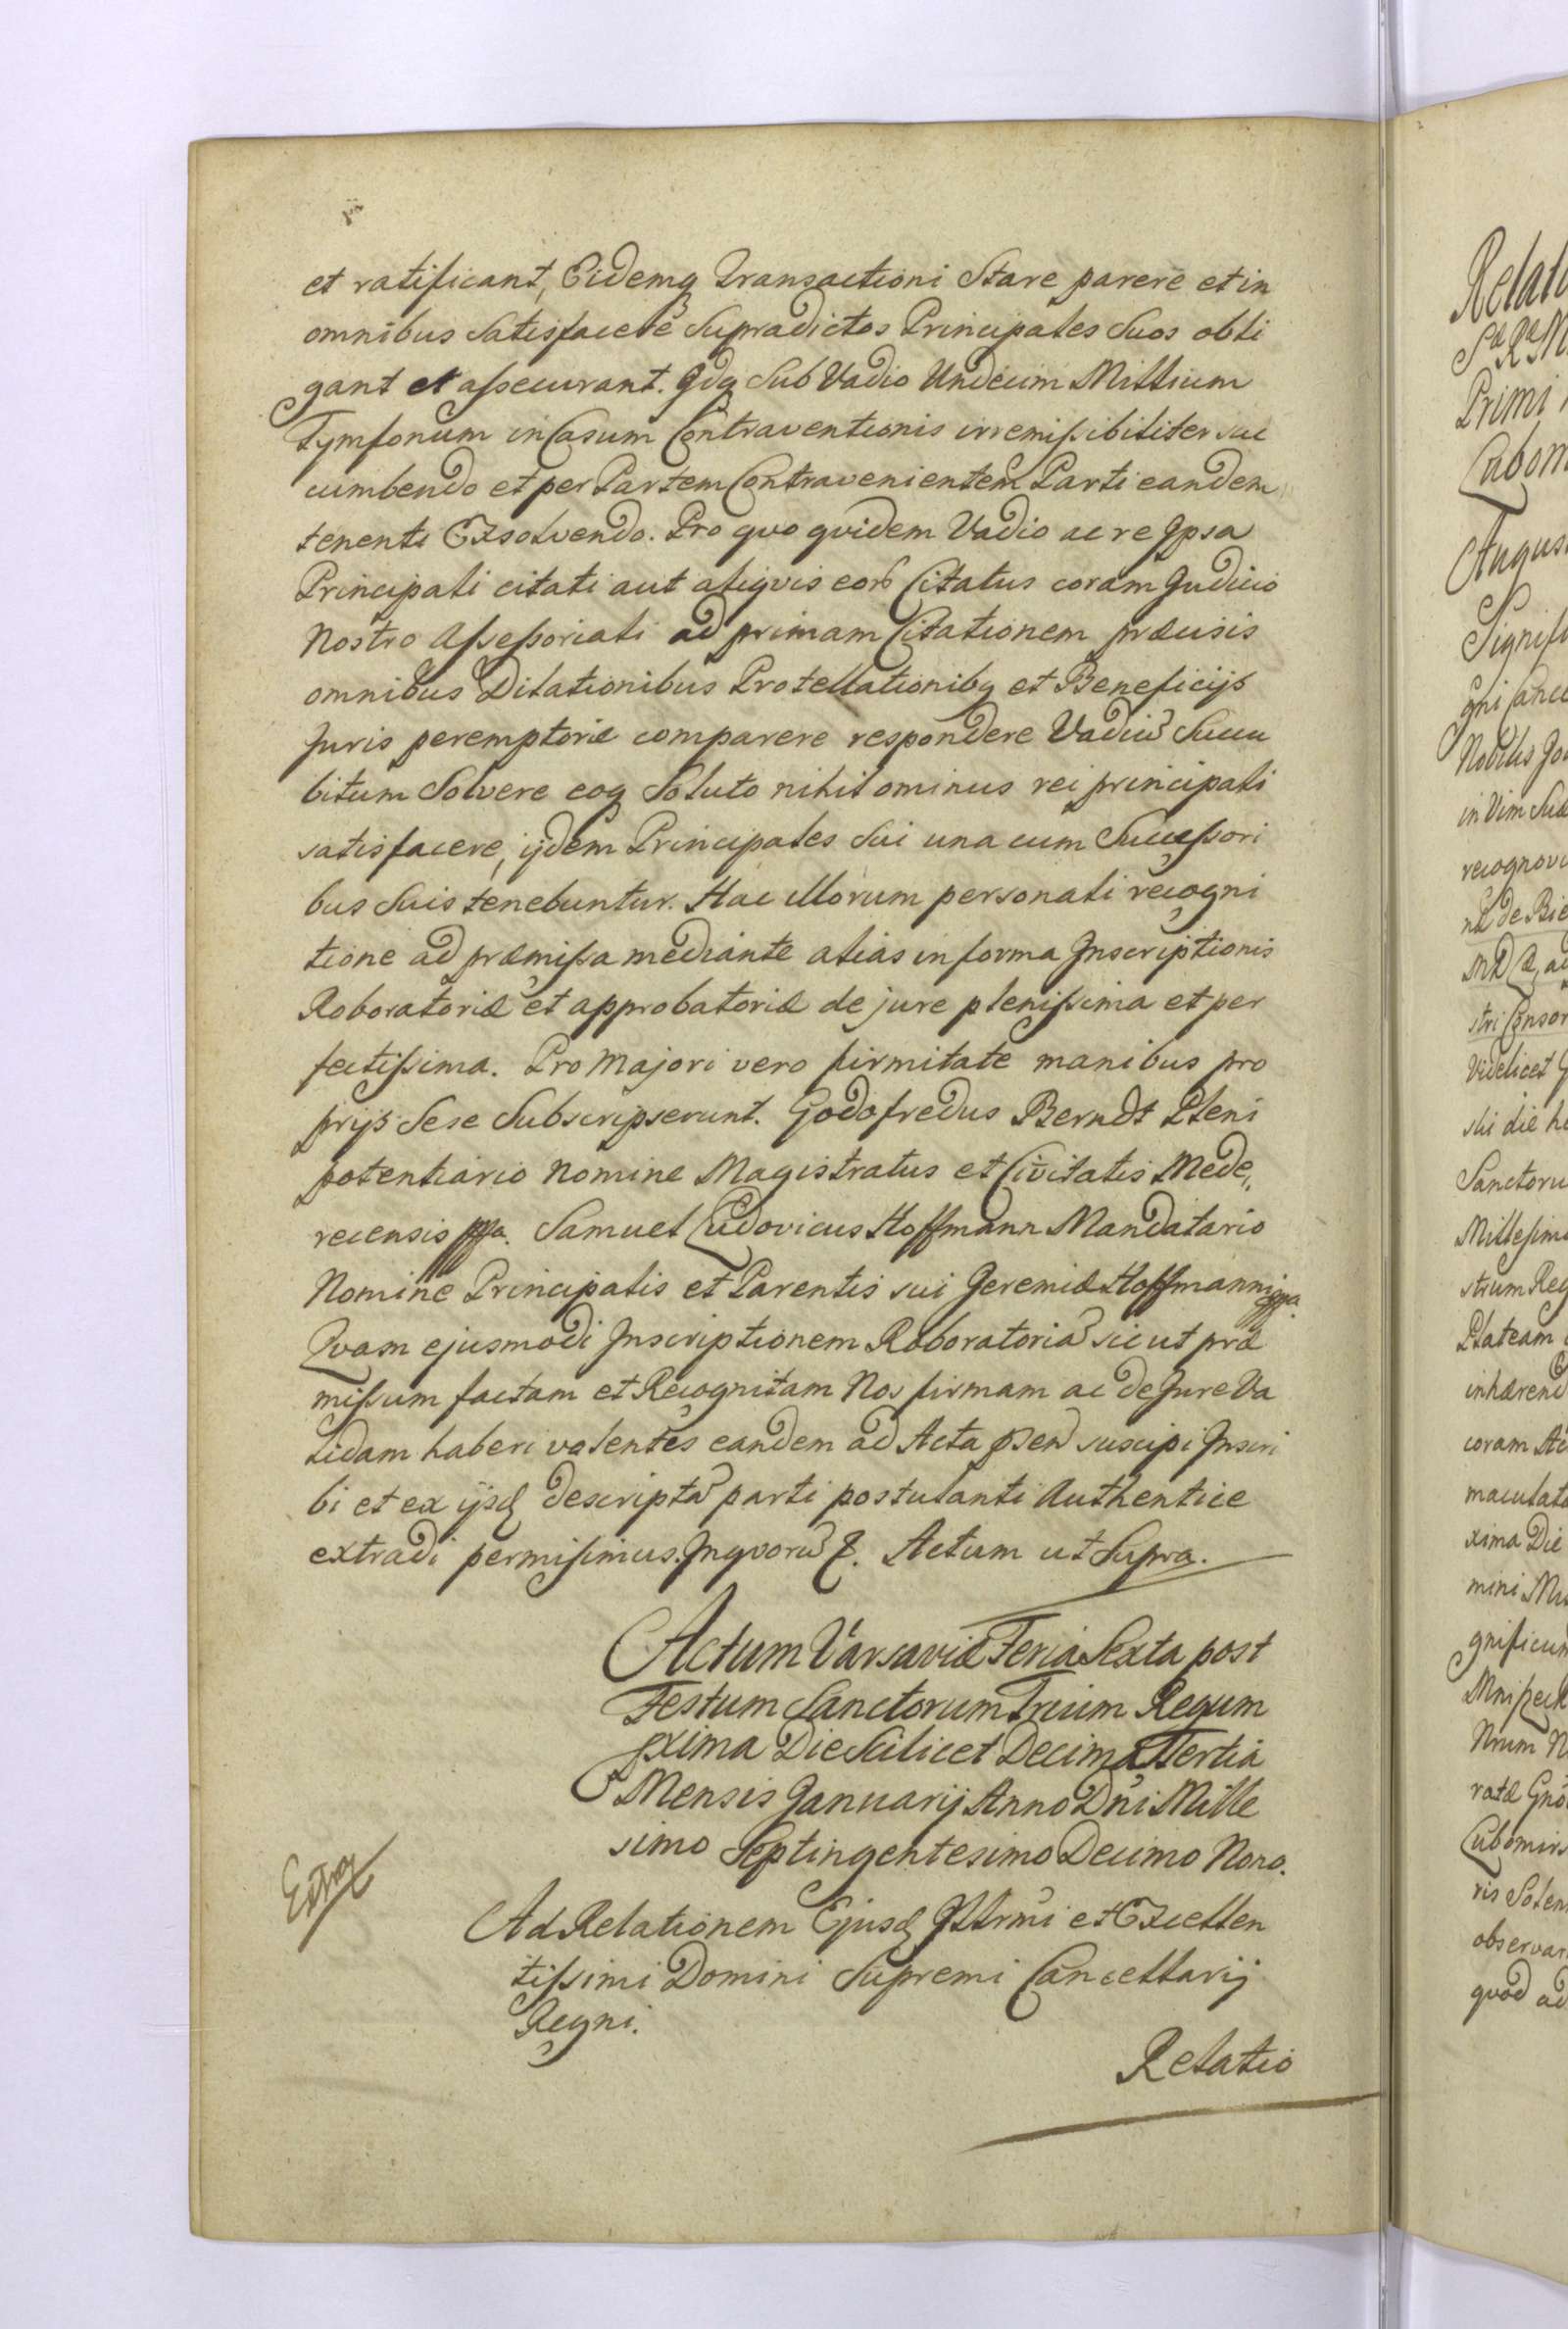 et ratificant, Eidemq Transactioni Stare parere et in
omnibus Satisfacere Supradictos Principales Suos obli
gant et assecurant. Qdq Sub Vadio Undecim Millium
Tymfonum in Casum Contraventionis irremissibiliter suc
cumbendo et per Partem Contravenientem Parti eandem
tenenti Exsolvendo. Pro qvo qvidem Vadio ac re Ipsa
Principali citati aut aliqvis eor Citatus coram Judicio
Nostro Assessoriali ad primam Citationem præcisis
omnibus Dilationibus Protellationibq et Beneficijs
Juris peremptorie comparere respondere Vadiu Succu
bitum Solvere eoq Soluto nihilominus rei principali
satisfacere, ijdem Principales Sui una cum Successori
bus Suis tenebuntur. Hac Illorum personali recogni
tione ad præmissa mediante alias in forma Inscriptionis
Roboratoriæ et approbatoriæ de jure plenissima et per
fectissima. Pro Majori vero firmitate manibus pro
prijs Sese Subscripserunt. Godofredus Berndt Pleni
potentiario Nomine Magistratus et Civitatis Mede,,
recensis mppa. Samuel Ludovicus Hoffmann Mandatario
Nomine Principalis et Parentis sui Jeremiæ Hoffmanni mppa.
Qvam ejusmodi Inscriptionem Roboratoria sicut præ
missum factam et Recognitam Nos firmam ac de Jure Va
lidam haberi volentes eandem ad Acta psen suscipi Inscri
bi et ex ijsd descripta parti postulanti Authentice
extradi permisimus. Inqvoru &. Actum ut Supra.
Actum Varsaviæ Feria Sexta post
Festum Sanctorum Trium Regum
pxima Die Scilicet Decima Tertia
Mensis Januarij Anno Dni Mille
simo Septingentesimo Decimo Nono.
Extra
Ad Relationem Ejusd Illrmi et Excellen
tissimi Domini Supremi Cancellarij
Regni.
Relatio
Primi
Nobilis
in Vim
recognov
Videlicet
Sanctoru
Millesimo
Plateam
coram
maculat
xima Die
mini
Lubomirs
observan
quod ad